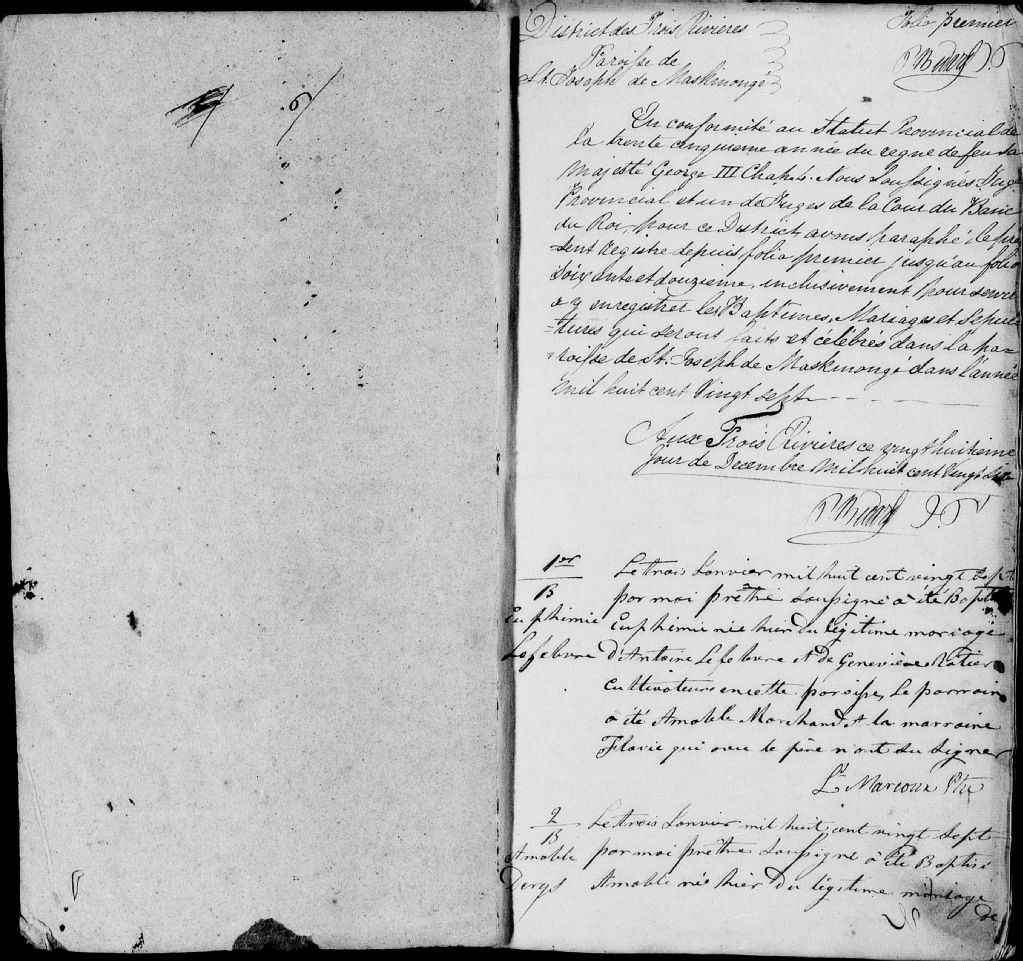 District des Trois Rivieres
Folio premier
Paroisse de
St. Joseph de Maskinongé
En conformité au Statut Provincial de
la trente cinquieme année du regne de feu Sa
Majesté George III Chap. 4. Nous Soussignés Juge
Provincial et un de Juges de la Cour du Banc
du Roi, pour ce District, avons paraphé le pre
sent Registre depuis folio premier jusqu'au folio
Soixante et douzieme, inclusivement, pour servir
a y enregistrer les Baptemes, Mariages et Sepul-
-tures qui seront faits et célébrés dans la pa-
-roisse de St. Joseph de Maskinongé dans l'année
mil huit cent Vingt sept
Aux Trois Rivieres ce vingt huitieme
jour de Decembre mil huit cent Vingt
1er
B
Euphimie
Lefebvre
Le trois Janvier mil huit cent vingt sept
par moi prêtre soussigné a été Baptisé
Euphimie née hier du légitime mariage
d'Antoine Lefebvre et de Geneviève
cultivateurs en cette paroisse, Le parrain
a été Amable Marchand et la marraine
Flavie qui avec le père n'ont su signer
Lr Marcoux Ptre
2
B
Amable
Le trois Janvier mil huit cent vingt sept
par moi prêtre soussigné a été Baptisé
Amable né hier du légitime mariage
de